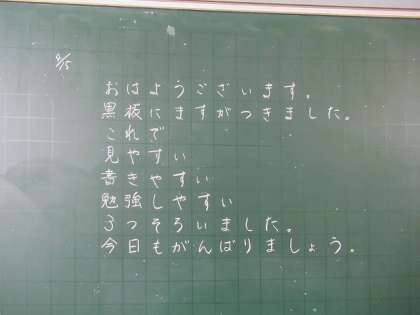 9/5
おはようございます。
黒板にますがつきました。
これで
見やすい
書きやすい
勉強しやすい
3つそろいました。
今日もがんばりましょう。